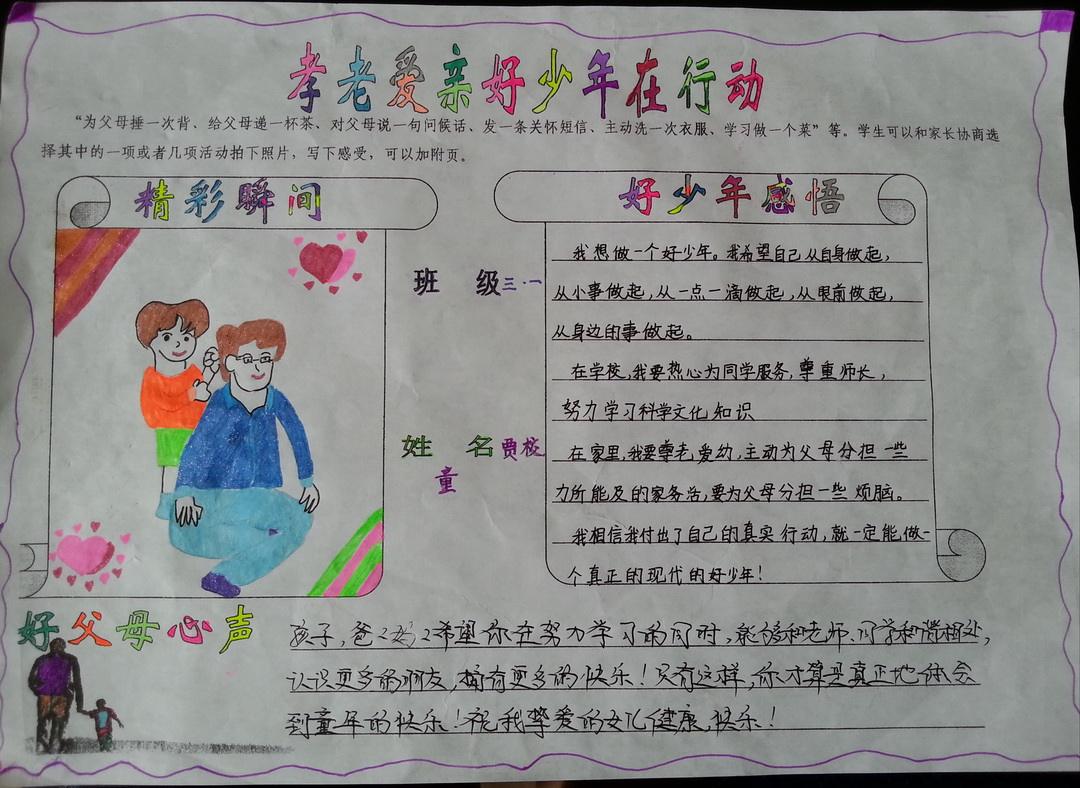 孝老爱亲好少年在行动
“为父母捶一次背、给父母递一杯茶、对父母说一句问候话、发一条关怀短信、主动洗一次衣服、学习做一个菜”等。学生可以和家长协商选
择其中的一项或者几项活动拍下照片，写下感受，可以加附页。
精彩瞬间
班 级三·一
姓 名贾校
童
好少年感悟
我想做一个好少年。我希望自己从自身做起，
从小事做起，从一点一滴做起，从眼前做起，
从身边的事做起。
在学校，我要热心为同学服务，尊重师长，
努力学习科学文化知识
在家里，我要尊老爱幼，主动为父母分担一些
力所能及的家务活，要为父母分担一些烦脑。
我相信我付出了自己的真实行动，就一定能做一
个真正的现代的好少年！
好父母心声
孩子，爸々妈々希望你在努力学习的同时，能够和老师、同学和谐相处，
认识更多的朋友，拥有更多的快乐！只有这样，你才算是真正地体会
到童年的快乐！祝我挚爱的女儿健康，快乐！